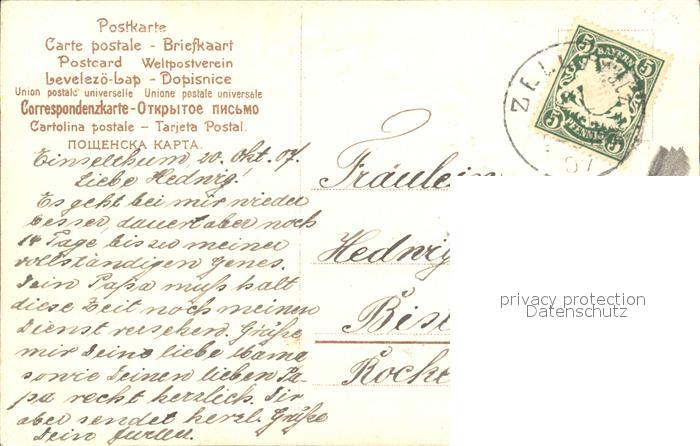 Postkarte
Carte postale - Briefkaart
Postcard Weltpostverein
Levelező-Lap - Dopisnice
Union postale universelle Unione postale universale
Correspondenzkarte - Открытое письмо
Cartolina postale - Tarjeta Postal.
ПОЩЕНСКА КАРТА.
Einselthum, 20. Okt. 07.
Liebe Hedwig!
Es geht bei mir wieder
besser, dauert aber noch
14 Tage bis zu meiner
vollständigen Genes.
Dein Papa muß halt
diese Zeit noch meinen
Dienst versehen. Grüße
mir Deine liebe Mama
sowie Deinen lieben Pa-
pa recht herzlich. Dir
aber sendet herzl. Grüße
Dein
BAYERN
5 5
5 5
PFENNIG
ZELL
07
Fräulein
Hedwig
Bis
Rocke
privacy protection
Datenschutz